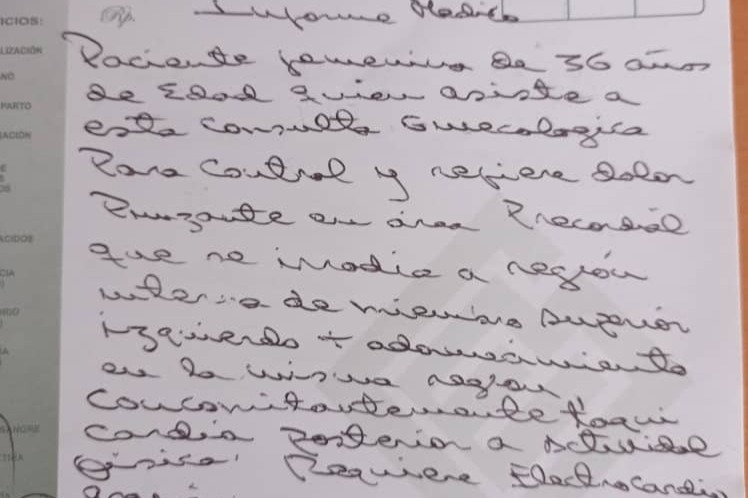 ICIOS:
LIZACIÓN
NO
PARTO
ACIÓN
ACIDOS
CIA
NDO
SANGRE
Rp.
Informe Medico
Paciente femenina de 36 años
de Edad quien asiste a
esta consulta Ginecologica
Para Control y refiere dolor
Punzante en área Precordial
que se irradia a región
interna de miembro superior
izquierdo + adormecimiento
en la misma region
Concomitantemente taqui
cardia Posterior a actividad
física. Requiere Electrocardio